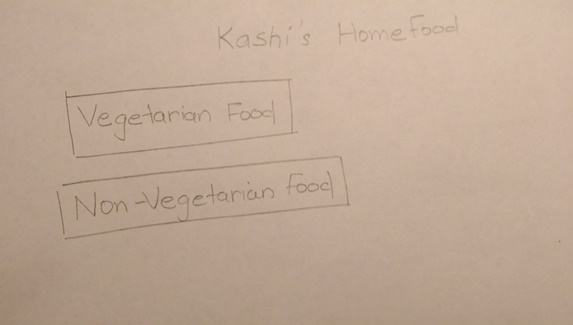 Kashi's HomeFood
Vegetarian Food
Non-Vegetarian food